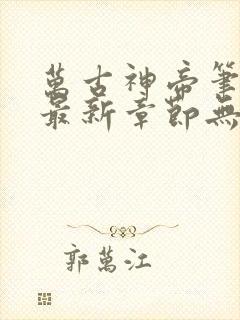 萬古神帝筆
最新章節無
郭萬江